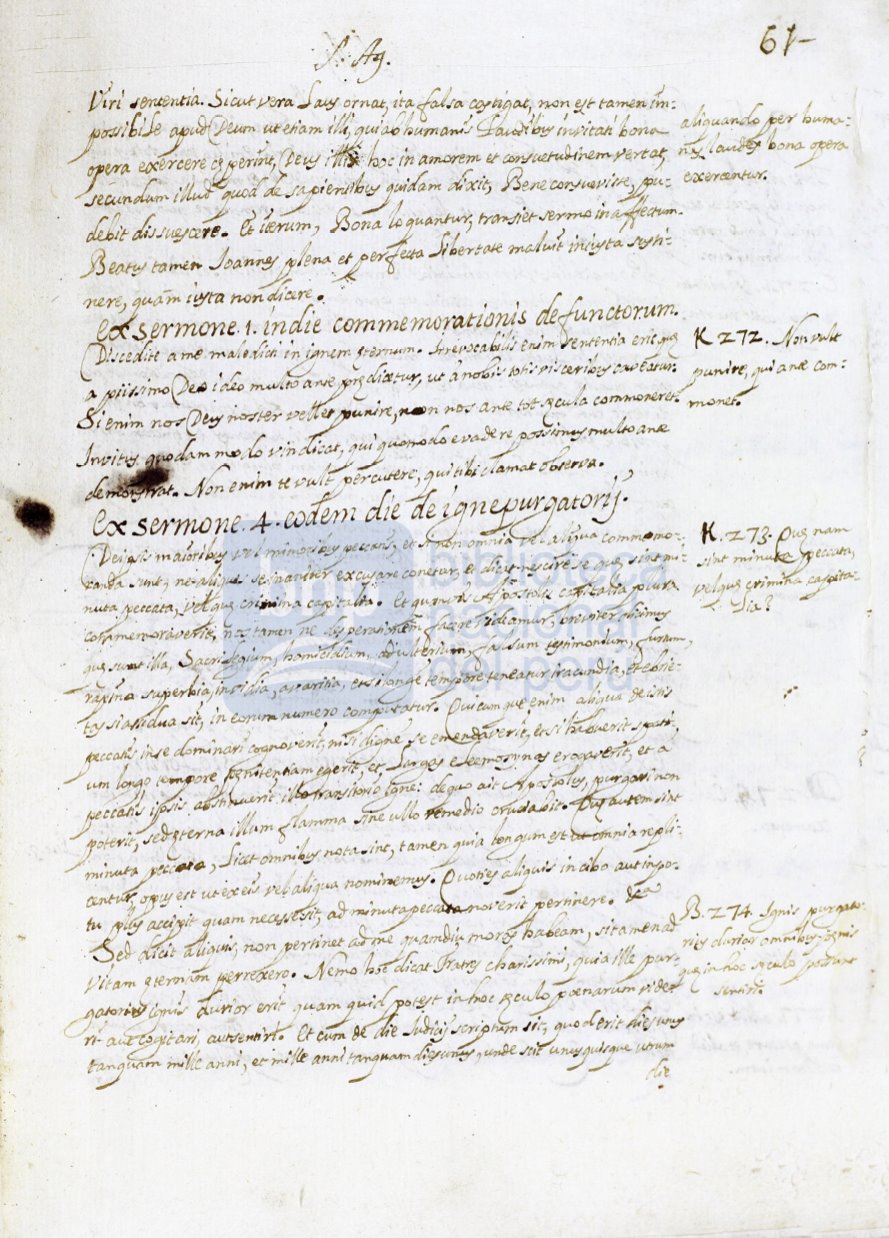 S. Ag.
61-
Viri sententia. Sicut vera Laus ornat, ita falsa castigat, non est tamen im-
possibile apud Deum ut etiam illi, qui ab humanis Laudibus invitati bona
opera exercere cęperint, Deus illis hoc in amorem et consuetudinem vertat,
secundum illud quod de sapientibus quidam dixit, Bene consuevisse, pu-
debit dissuescere. Et iterum, Bona loquantur, transiet sermo in affectum.
Beatus tamen Ioannes plena et perfecta libertate maluit iniusta susti-
nere, quam iusta non dicere.
aliquando per huma-
nas laudes bona opera
exercentur.
Ex sermone. 1. in die commemorationis defunctorum.
Discedite a me maledicti in ignem ęternum. Irrevocabilis enim sententia erit quę
a piissimo Deo ideo multo ante prędicitur, ut à nobis totis visceribus caveatur.
Si enim nos Deus noster vellet punire, non nos ante tot sęcula commoneret.
Invitus quodam modo vindicat, qui quomodo evadere possimus multo ante
demonstrat. Non enim te vult percutere, qui tibi clamat observa.
K 272. Non vult
punire, qui ante com-
monet.
Ex sermone. 4. eodem die de igne purgatorij.
De ipsis maioribus vel minoribus peccatis, et si non omnia vel aliqua commemo-
randa sunt, ne aliquis se inaniter excusare conetur, et dicat nescire se quę sint mi-
nuta peccata, vel quę crimina capitalia. Et quamvis Apostolus capitalia plura
commemoraverit, nos tamen ne desperationem facere videamur, breviter dicimus
quę sunt illa, Sacrilegium, homicidium, adulterium, falsum testimonium, furtum,
rapina superbia, invidia, avaritia, et si longo tempore teneatur iracundia, et ebrie-
tas si assidua sit, in eorum numero computatur. Quicumque enim aliqua de istis
peccatis in se dominari cognoverit, nisi digne se emendaverit, et si habuerit spati-
um longo tempore pęnitentiam egerit, et Larges eleemosynas erogaverit, et a
peccatis ipsis abstinuerit illo transitorio igne de quo ait Apostolus, purgari non
poterit, sed ęterna illum flamma sine ullo remedio cruciabit. Quę autem sint
minuta peccata, licet omnibus nota sint, tamen quia longum est ut omnia repli-
cantur, opus est ut ex eis vel aliqua nominemus. Quoties aliquis in cibo aut in po-
tu plus accipit quam necesse sit, ad minuta peccata noverit pertinere. &ca
K. 273. Quę nam
sint minuta peccata,
vel quę crimina capita-
lia?
Sed dicit aliquis, non pertinet ad me quamdiu moras habeam, si tamen ad
vitam ęternam perrexero. Nemo hoc dicat fratres charissimi, quia ille pur-
gatorius ignis durior erit quam quid potest in hoc sęculo pœnarum vide-
ri aut cogitari, aut sentiri. Et cum de die Iudicij scriptum sit, quod erit dies unus
tanquam mille anni, et mille anni tanquam dies unus, unde scit unusquisque utrum
die
B. 274. Ignis purgato-
rius durior omnibus pęnis
quę in hoc sęculo possunt
sentiri.
biblioteca
nacional
del perú